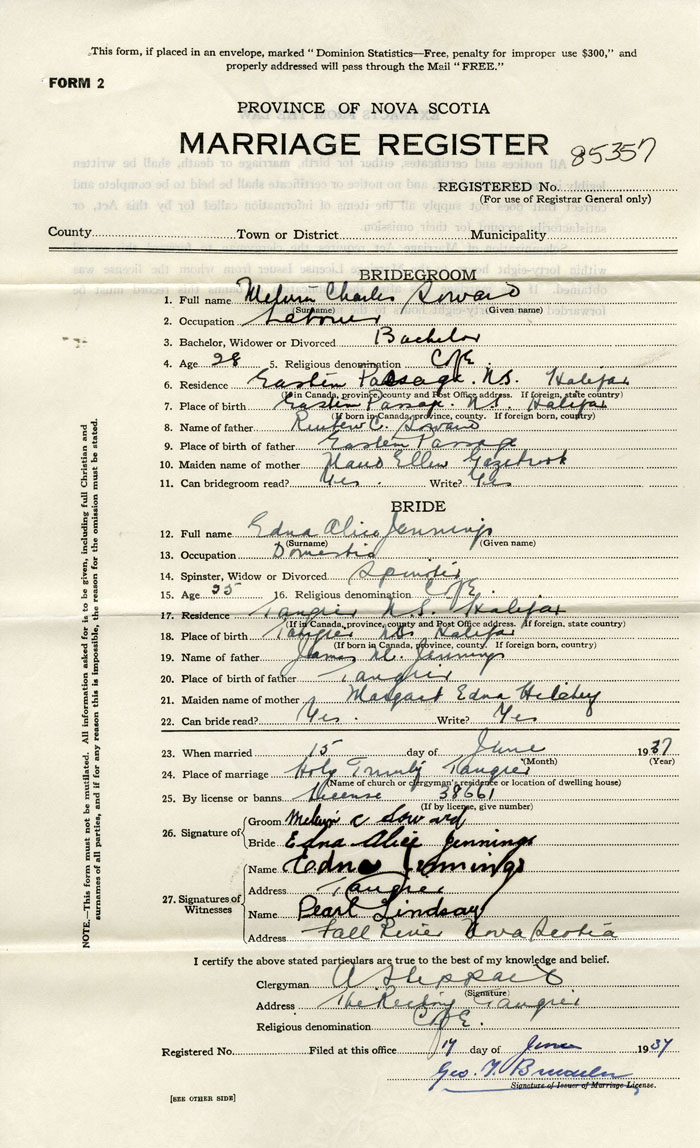 This form, if placed in an envelope, marked "Dominion Statistics—Free, penalty for improper use $300," and
properly addressed will pass through the Mail "FREE."
FORM 2
PROVINCE OF NOVA SCOTIA
MARRIAGE REGISTER 85357
REGISTERED No.
(For use of Registrar General only)
County Town or District Municipality
BRIDEGROOM
1. Full name Melvin Charles Soward
(Surname) (Given name)
2. Occupation Labourer
3. Bachelor, Widower or Divorced Bachelor
4. Age 28 5. Religious denomination C of E.
6. Residence Eastern Passage. N.S. Halifax
(If in Canada, province, county and Post Office address. If foreign, state country)
7. Place of birth Eastern Passage. N.S. Halifax
(If born in Canada, province, county. If foreign born, country)
8. Name of father Reuben C. Soward
9. Place of birth of father Eastern Passage
10. Maiden name of mother Maud Ellen
11. Can bridegroom read? Yes. Write? Yes
BRIDE
12. Full name Edna Alice Jennings
(Surname) (Given name)
13. Occupation Domestic
14. Spinster, Widow or Divorced Spinster
15. Age 16. Religious denomination C of E.
17. Residence Tangier N.S. Halifax
(If in Canada, province, county and Post Office address. If foreign, state country)
18. Place of birth Tangier N.S. Halifax
(If born in Canada, province, county. If foreign born, country)
19. Name of father James M. Jennings
20. Place of birth of father Tangier
21. Maiden name of mother Margaret Edna
22. Can bride read? Yes. Write? Yes
23. When married 15 day of June 1937
(Month) (Year)
24. Place of marriage Holy Trinity Tangier
(Name of church or clergyman's residence or location of dwelling house)
25. By license or banns License 38661
(If by license, give number)
26. Signature of Groom Melvin C Soward
Bride Edna Alice Jennings
27. Signatures of Witnesses Name Edna Jennings
Address Tangier
Name Pearl Lindsay
Address Fall River Nova Scotia
I certify the above stated particulars are true to the best of my knowledge and belief.
Clergyman
(Signature)
Address The Rectory Tangier
Religious denomination C of E.
Registered No. Filed at this office 17 day of June 1937
Geo. Y.
Signature of Issuer of Marriage License.
[SEE OTHER SIDE]
NOTE.—This form must not be mutilated. All information asked for is to be given, including full Christian and
surnames of all parties, and if for any reason this is impossible, the reason for the omission must be stated.